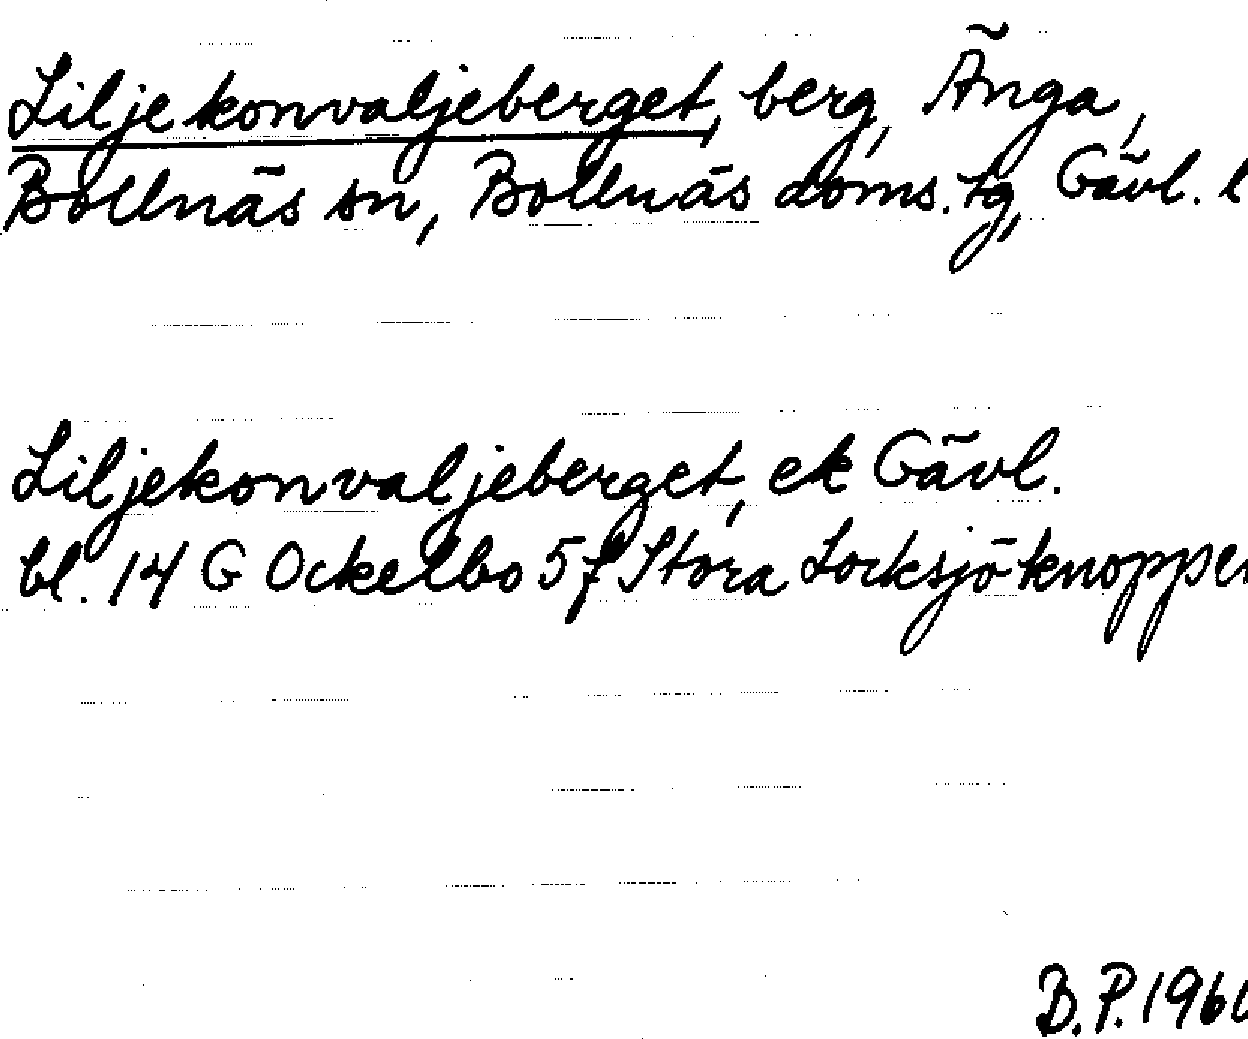 Liljekonvaljeberget, berg, Änga,
Bollnäs sn, Bollnäs doms. tg, Gävl. l
Liljekonvaljeberget, ek Gävl.
bl. 14 G Ockelbo 5f Stora Locksjö-knoppen
B.P. 196